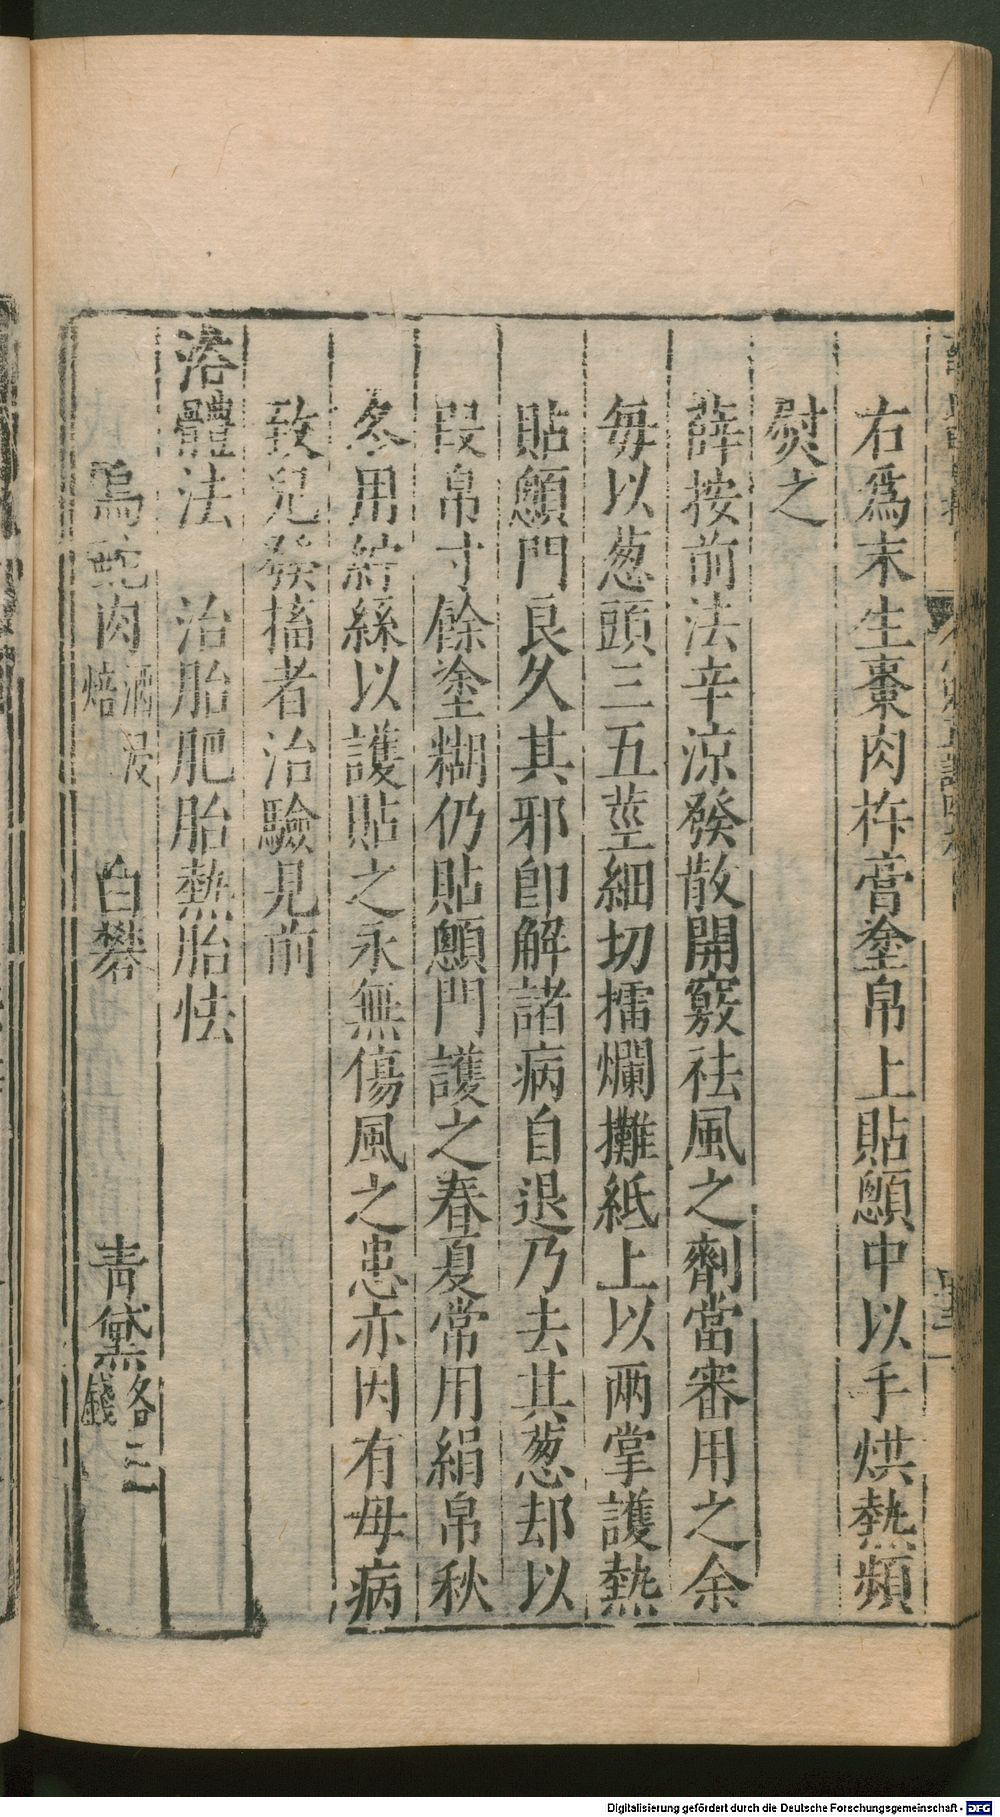 右爲末生棗肉杵膏塗帛上貼顖中以手烘熱頻
熨之
薛按前法辛涼發散開竅祛風之劑當審用之余
毎以葱頭三五莖細切擂爛攤紙上以两掌護熱
貼顖門良久其邪卽解諸病自退乃去其葱却以
叚帛寸餘塗糊仍貼顖門護之春夏常用絹帛秋
冬用紵絲以護貼之永無傷風之患亦因有母病
致兒發搐者治驗見前
浴體法　治胎肥胎熱胎怯
烏蛇肉酒浸焙　白礬　青黛各三錢
Digitalisierung gefördert durch die Deutsche Forschungsgemeinschaft - DFG